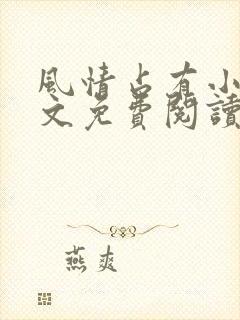 風情占有小
文免費閱讀
燕爽